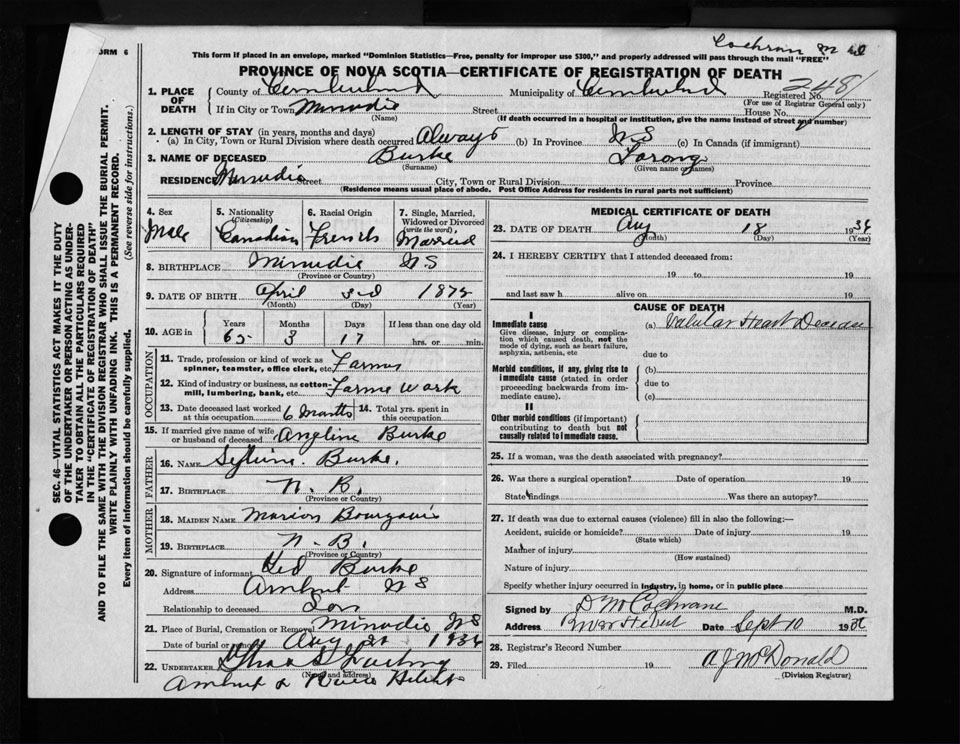 Cochran M D
FORM 6
This form if placed in an envelope, marked "Dominion Statistics—Free, penalty for improper use $300," and properly addressed will pass through the mail "FREE"
PROVINCE OF NOVA SCOTIA—CERTIFICATE OF REGISTRATION OF DEATH
1. PLACE OF DEATH County of Cumberland Municipality of Cumberland Registered No. 2481
(For use of Registrar General only)
If in City or Town Minudie Street House No.
(Name) (If death occurred in a hospital or institution, give the name instead of street and number)
2. LENGTH OF STAY (in years, months and days)
(a) In City, Town or Rural Division where death occurred Always (b) In Province N S (c) In Canada (if immigrant)
3. NAME OF DECEASED Burke
(Surname) (Given name or names)
RESIDENCE Minudie Street City, Town or Rural Division Province
(Residence means usual place of abode. Post Office Address for residents in rural parts not sufficient)
SEC. 46—VITAL STATISTICS ACT MAKES IT THE DUTY
OF THE UNDERTAKER OR PERSON ACTING AS UNDER-
TAKER TO OBTAIN ALL THE PARTICULARS REQUIRED
IN THE "CERTIFICATE OF REGISTRATION OF DEATH"
AND TO FILE THE SAME WITH THE DIVISION REGISTRAR WHO SHALL ISSUE THE BURIAL PERMIT.
WRITE PLAINLY WITH UNFADING INK. THIS IS A PERMANENT RECORD.
Every item of information should be carefully supplied. (See reverse side for instructions.)
4. Sex Male
5. Nationality (Citizenship) Canadian
6. Racial Origin French
7. Single, Married, Widowed or Divorced (write the word) Married
8. BIRTHPLACE Minudie N S
(Province or Country)
9. DATE OF BIRTH April 3rd
(Month) (Day) (Year)
10. AGE in Years Months Days If less than one day old
65 3 17 hrs. or min.
OCCUPATION
11. Trade, profession or kind of work as spinner, teamster, office clerk, etc. Farmer
12. Kind of industry or business, as cotton-mill, lumbering, bank, etc. Farme Work
13. Date deceased last worked at this occupation 6 Months 14. Total yrs. spent in this occupation
15. If married give name of wife or husband of deceased Angeline Burke
FATHER
16. NAME Burke.
17. BIRTHPLACE N. B.
(Province or Country)
MOTHER
18. MAIDEN NAME
19. BIRTHPLACE N. B.
(Province or Country)
20. Signature of informant Burke
Address Amherst N S
Relationship to deceased Son
21. Place of Burial, Cremation or Removal Minudie NS
Date of burial or removal Aug 20 1936
22. UNDERTAKER
(Name and address)
Amherst & River Hebert
MEDICAL CERTIFICATE OF DEATH
23. DATE OF DEATH Aug 18 1936
(Month) (Day) (Year)
24. I HEREBY CERTIFY that I attended deceased from:
19 to 19
and last saw h alive on 19
CAUSE OF DEATH
I
Immediate cause
Give disease, injury or complication which caused death, not the mode of dying, such as heart failure, asphyxia, asthenia, etc
(a) Valvular Heart Disease
due to
Morbid conditions, if any, giving rise to immediate cause (stated in order proceeding backwards from immediate cause).
(b)
due to
(c)
II
Other morbid conditions (if important) contributing to death but not causally related to immediate cause.
25. If a woman, was the death associated with pregnancy?
26. Was there a surgical operation? Date of operation 19
State findings Was there an autopsy?
27. If death was due to external causes (violence) fill in also the following:—
Accident, suicide or homicide? Date of injury 19
(State which)
Manner of injury
(How sustained)
Nature of injury
Specify whether injury occurred in industry, in home, or in public place
Signed by D M Cochrane M.D.
Address River Hebert Date Sept 10 1936
28. Registrar's Record Number
29. Filed 19 A J McDonald
(Division Registrar)